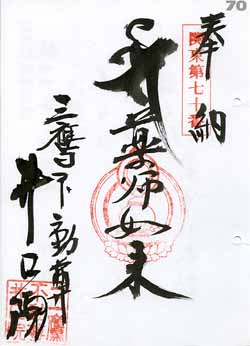 70
奉納
関東第七十番
薬師如来
三鷹不動尊
井口院